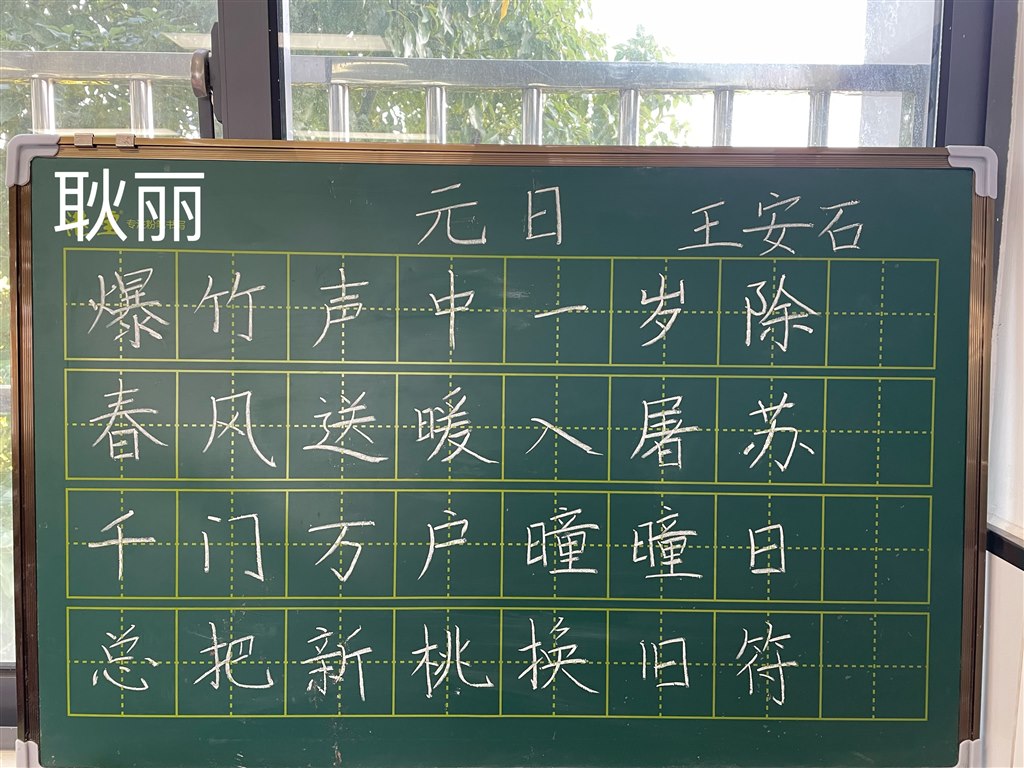 耿丽
元日 王安石
爆竹声中一岁除
春风送暖入屠苏
千门万户曈曈日
总把新桃换旧符